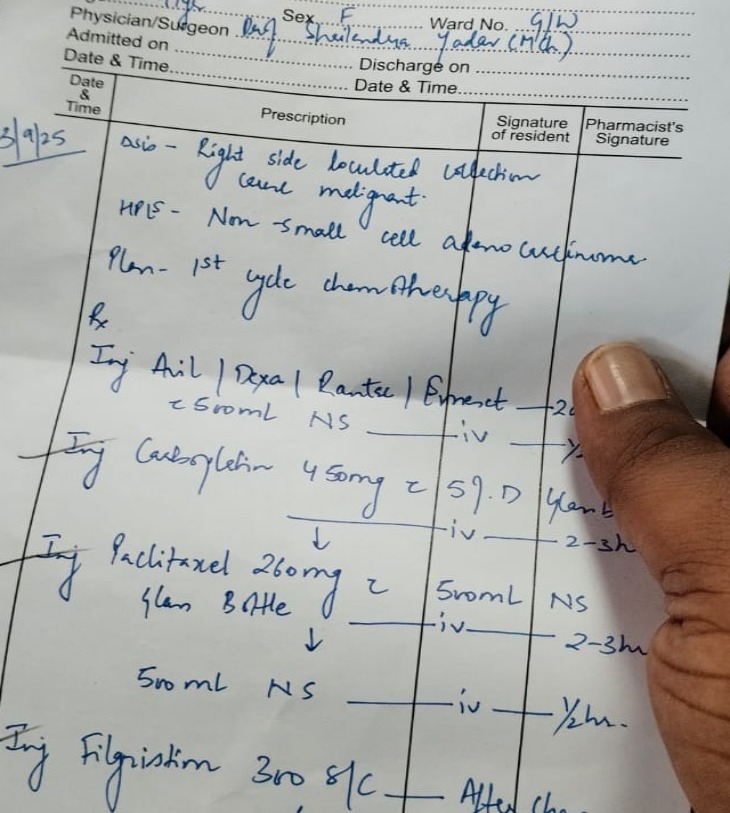 Sex F Ward No. G/W
Physician/Surgeon Prof Shailendra Yadav (M.Ch.)
Admitted on Discharge on
Date & Time Date & Time
Date & Time Prescription Signature of resident Pharmacist's Signature
3/9/25
Right side loculated collection
malignant.
HPE - Non-small cell adenocarcinoma
Plan - 1st cycle chemotherapy
Rx
Inj Avil / Dexa / Rantac / Emeset
c 500mL NS iv
Inj Carboplatin 450mg c 5%.D
iv 2-3h
↓
Inj Paclitaxel 260mg c 500mL NS
Glass Bottle iv 2-3hr
↓
500 mL NS iv ½hr.
Inj Filgristim 300 S/C After